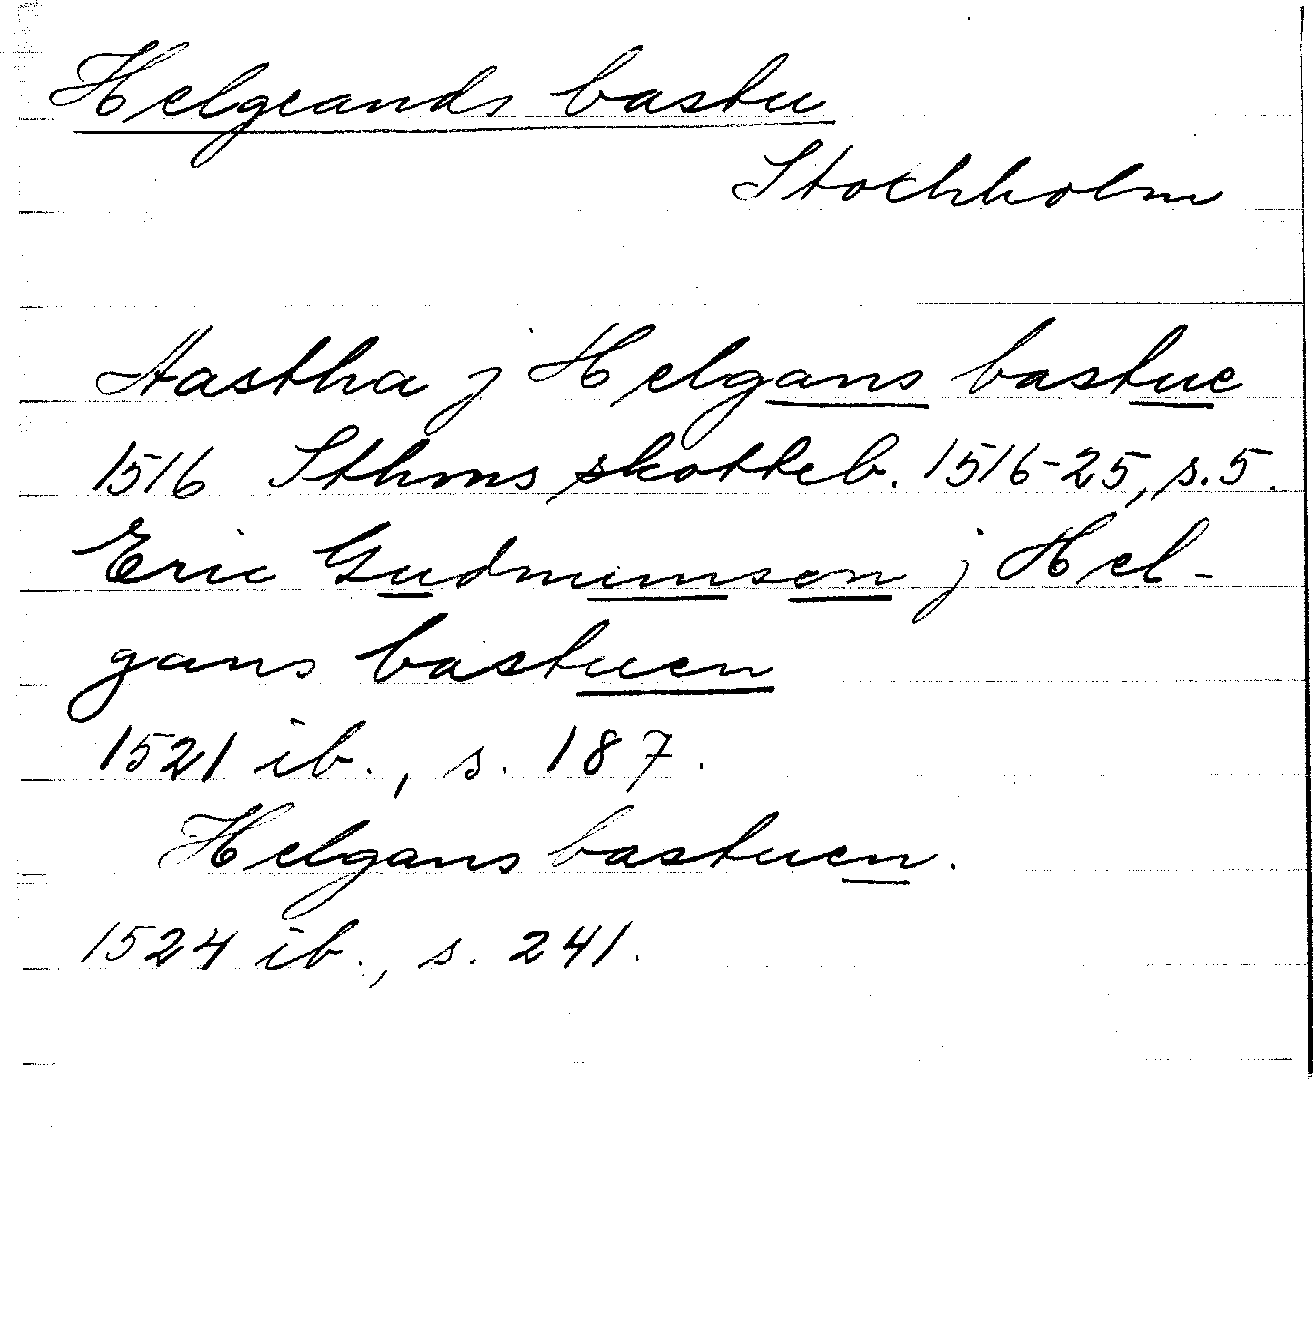 Helgeands bastu
Stockholm
Aastha j Helgans bastue
1516 Sthms skotteb. 1516-25, s. 5.
Eric Gudmumson j Hel-
gans bastuen
1521 ib., s. 187.
Helgans bastuen.
1524 ib., s. 241.